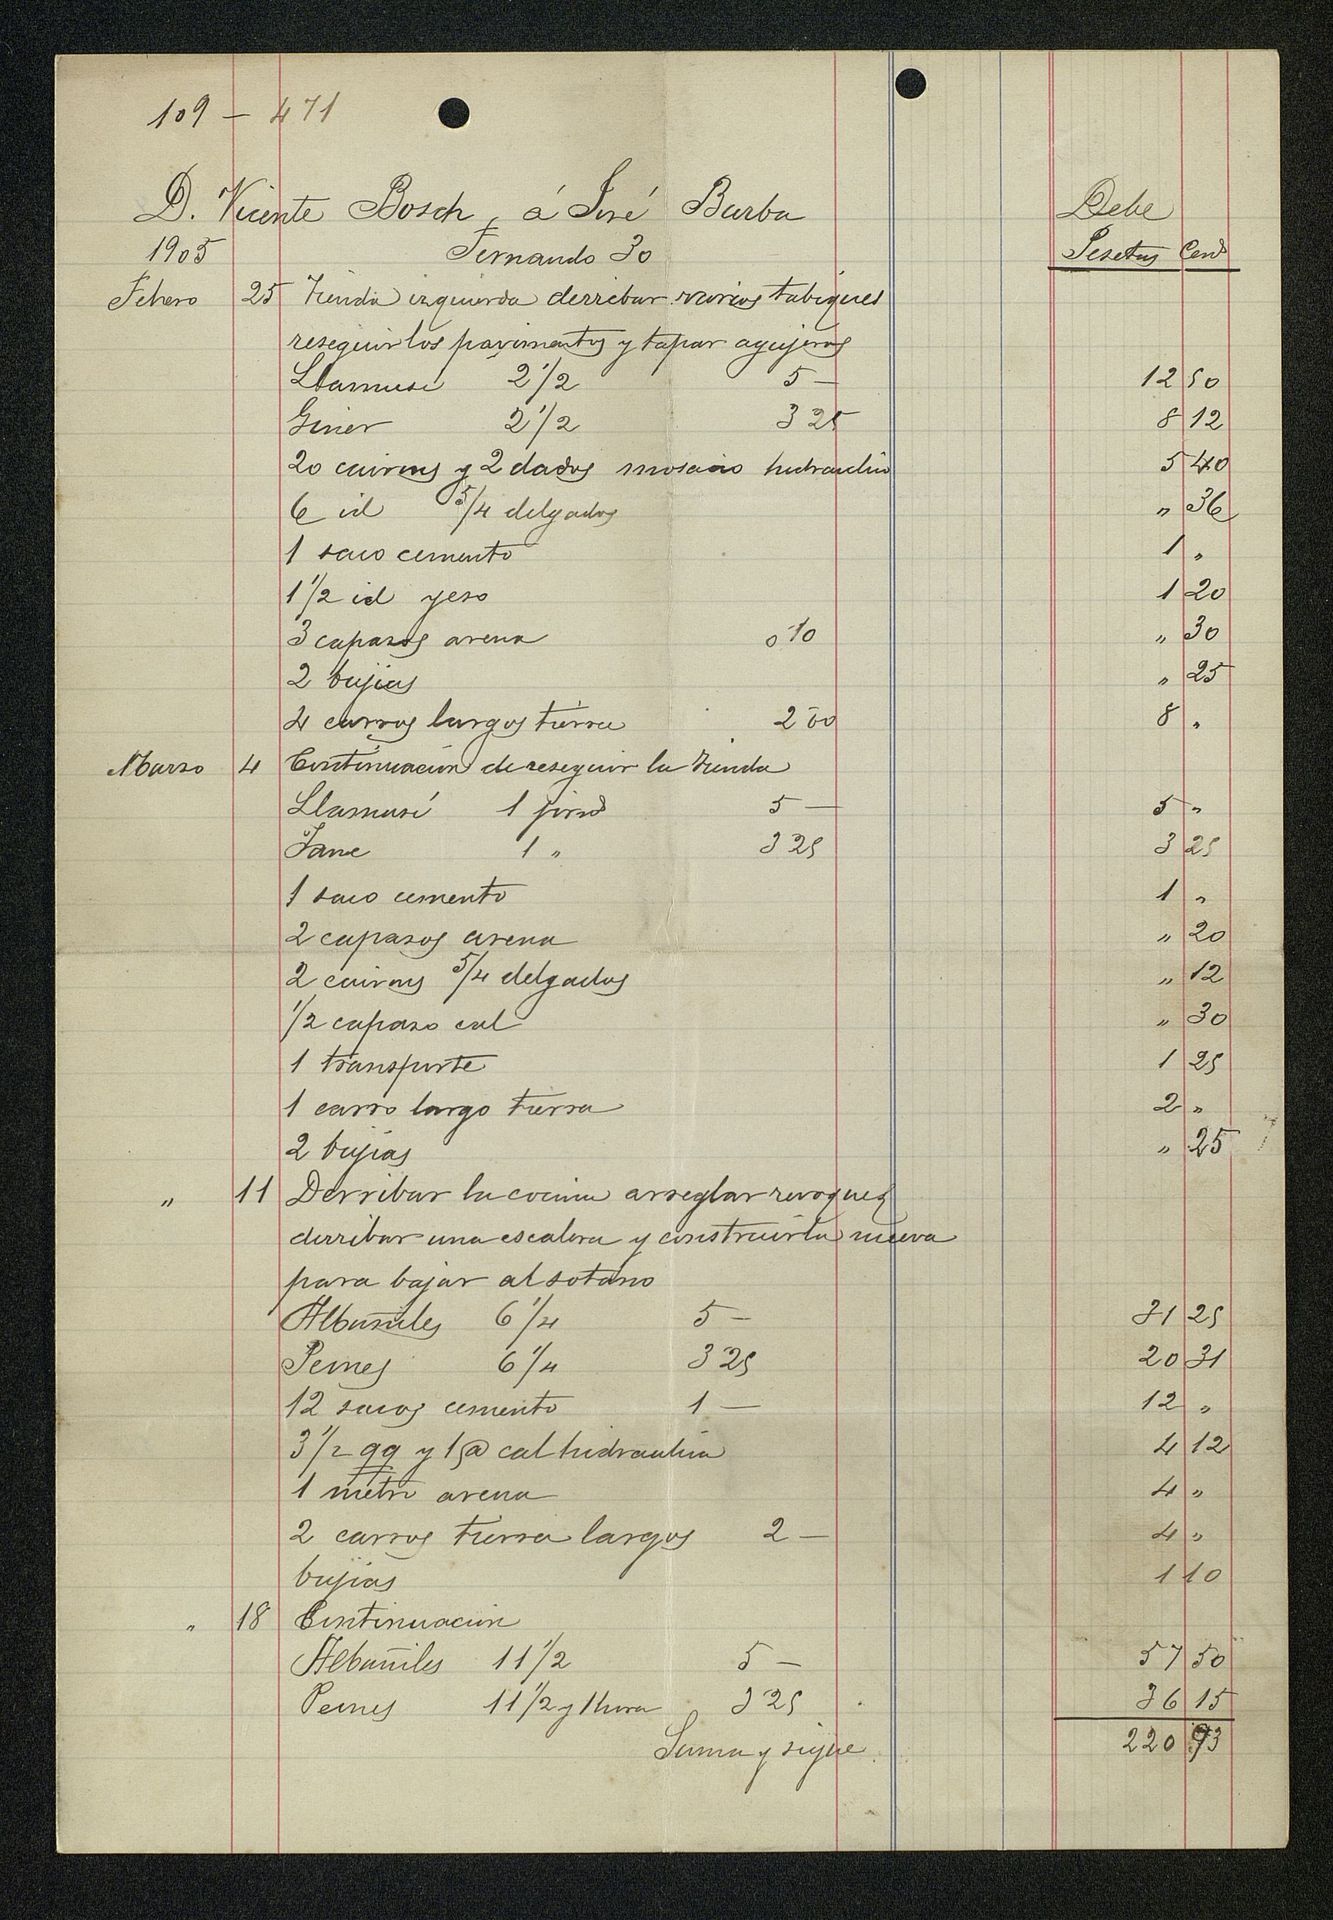 109 - 471
D. Vicente Bosch, á José Barba Debe
1905 Fernando 30 Pesetas Cents
Febero 25 Tienda izquierda derribar varios tabiques
reseguir los pavimentos y tapar agujeros
Llamusi 2 1/2 5 — 12 50
Giner 2 1/2 3 25 8 12
20 cairons y 2 dados mosaico hidraulico 5 40
6 id 5/4 delgados " 36
1 saco cemento 1 "
1 1/2 id yeso 1 20
3 capasos arena 0 10 " 30
2 bujias " 25
4 carros largos tierra 2 00 8 "
Marzo 4 Continuacion de reseguir la tienda
Llamusi 1 jornl 5 — 5 "
Jane 1 " 3 25 3 25
1 saco cemento 1 "
2 capasos arena " 20
2 cairons 5/4 delgados " 12
1/2 capaso cal " 30
1 transporte 1 25
1 carro largo tierra 2 "
2 bujias " 25
" 11 Derribar la cocina arreglar revoques
derribar una escalera y construirla nueva
para bajar al sotano
Albañiles 6 1/4 5 — 31 25
Peones 6 1/4 3 25 20 31
12 sacos cemento 1 — 12 "
3 1/2 qq y 1@ cal hidraulica 4 12
1 metro arena 4 "
2 carros tierra largos 2 — 4 "
bujias 1 10
" 18 Continuacion
Albañiles 11 1/2 5 — 57 50
Peones 11 1/2 y 1 hora 3 25 36 15
Suma y sigue 220 93